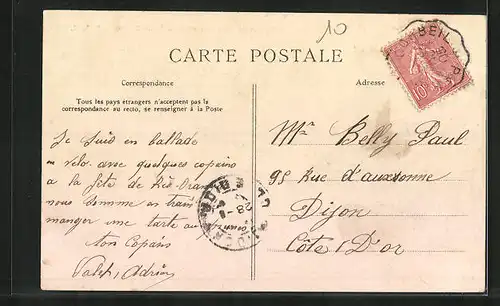 10
CARTE POSTALE
Correspondance
Adresse
Tous les pays étrangers n'acceptent pas la
correspondance au recto, se renseigner à la Poste
Je suis en ballade
en vélo avec quelques copains
a la fête de
nous sommes en train
manger une tarte au
ton Copain
Adrien
Mr Belly Paul
95 Rue d'auxonne
Dijon
Côte D'Or
10